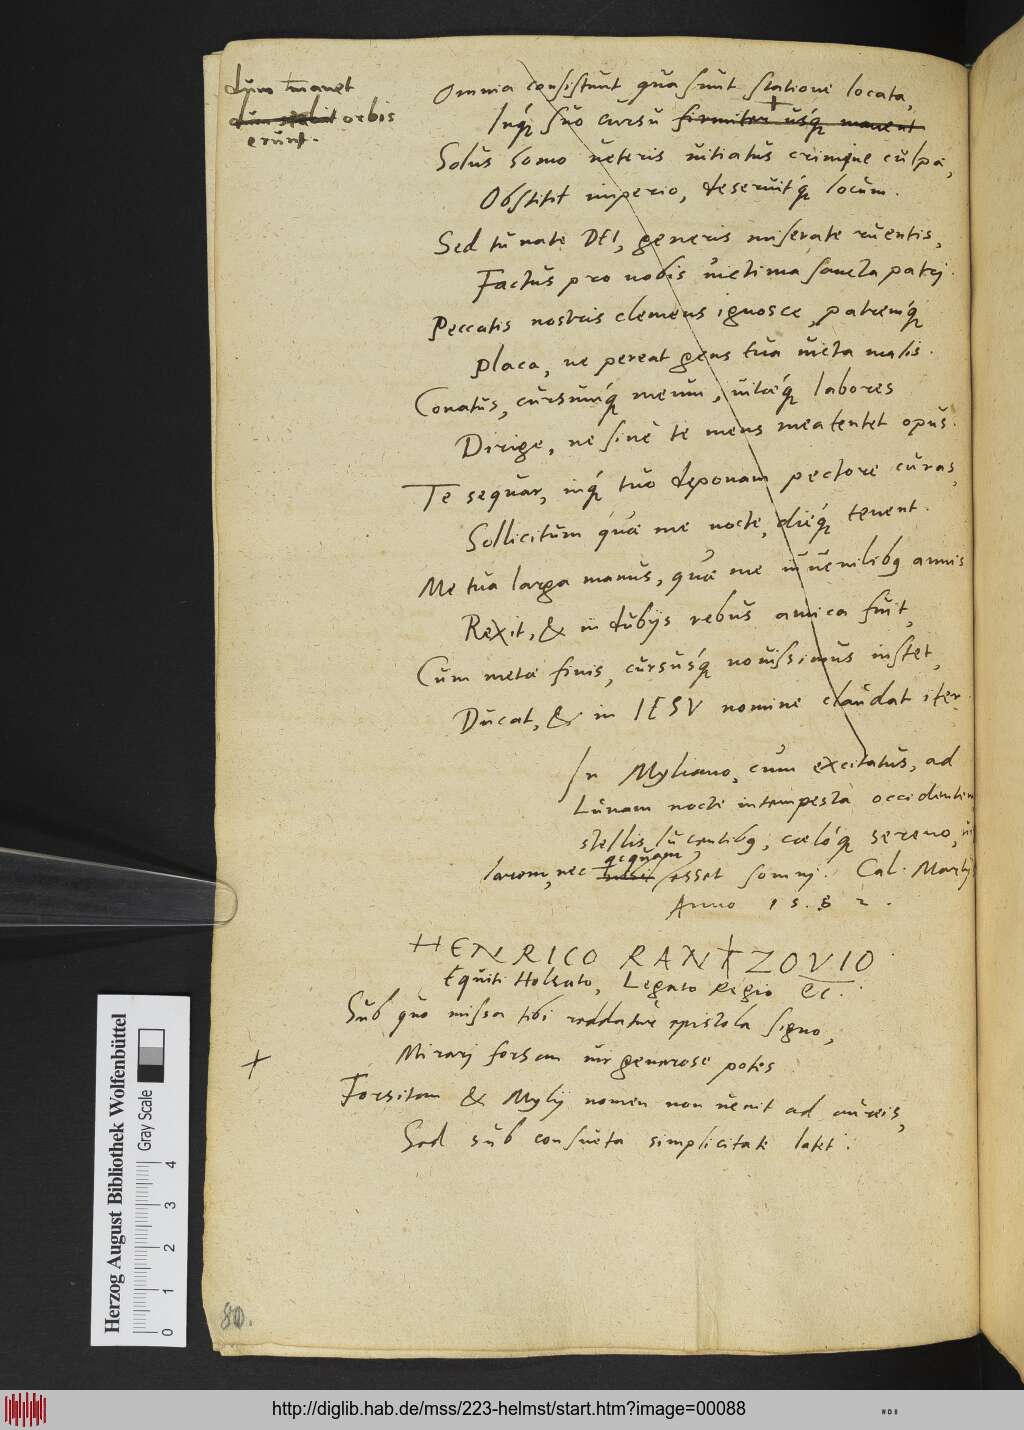 dum manet
dum stabit orbis
erunt.
Omnia consistunt qua sunt statione locata,
Inq́; suo cursu firmiter usq́; manent
Solus homo ueteris uitiatus crimine culpæ,
Obstitit imperio, deseruitq́; locum.
Sed tu nate DEI, generis miserate ruentis,
Factus pro nobis uictima sancta patri.
Peccatis nostris clemens ignosce, patremq́;
Placa, ne pereat gens tua uicta malis.
Conatus, cursumq́; meum, uitæq́; labores
Dirige, ne sine te mens mea tentet opus.
Te sequar, inq́; tuo deponam pectore curas,
Sollicitum quæ me nocte, dieq́; tenent.
Me tua larga manus, quæ me iuuenilibꝫ annis
Rexit, & in dubijs rebus amica fuit,
Cum meta finis, cursusq́; nouissimus instet,
Ducat, & in IESV nomine claudat iter.
In Myliano, cum excitatus, ad
Lunam nocte intempesta occidentem
stellis lucentibꝫ, cœloq́; sereno,
larem, nec acquam esset somnj. Cal. Martij
Anno 1582.
HENRICO RANTZOVIO
Equiti Holsato, Legato Regio ec.
Sub quo missa tibi reddatur epistola signo,
Mirarj forsan uir generose potes
Forsitan & Mylij nomen non uenit ad aureis,
Sed sub consueta simplicitate latet.
80.
Herzog August Bibliothek Wolfenbüttel
Gray Scale
0 1 2 3 4
http://diglib.hab.de/mss/223-helmst/start.htm?image=00088